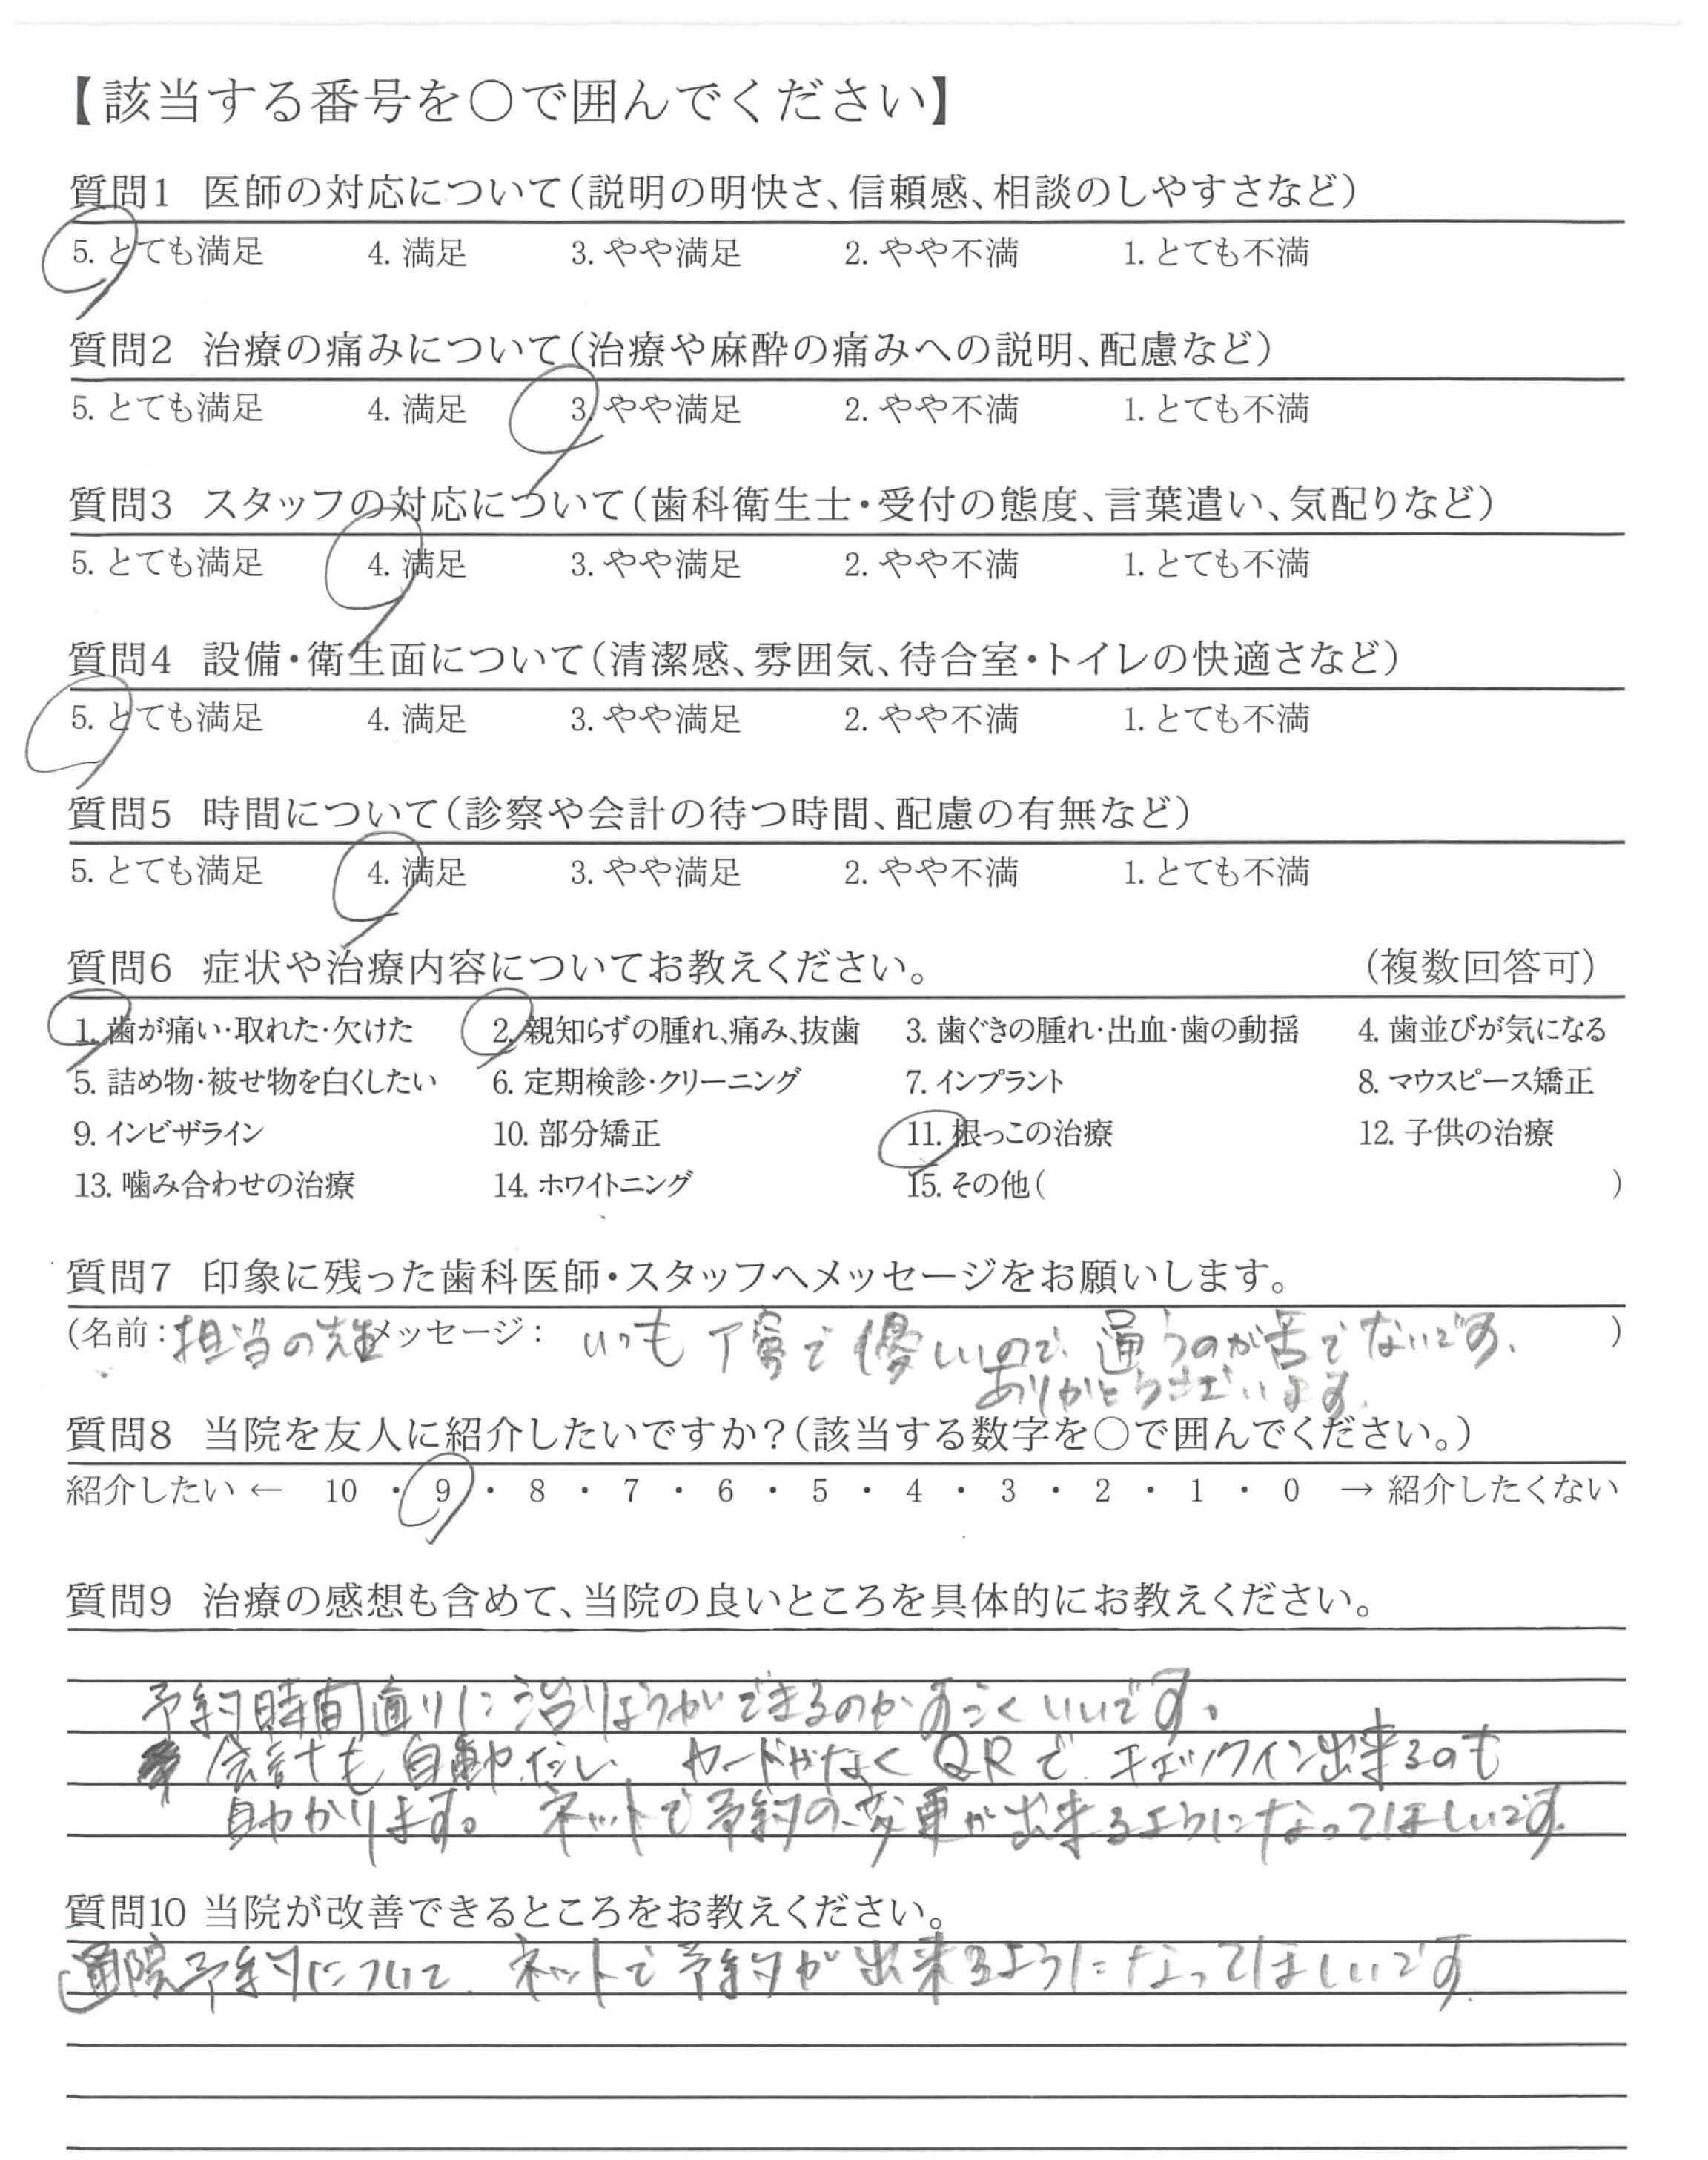 【該当する番号を○で囲んでください】
質問1 医師の対応について(説明の明快さ、信頼感、相談のしやすさなど)
5. とても満足 4. 満足 3. やや満足 2. やや不満 1. とても不満
質問2 治療の痛みについて(治療や麻酔の痛みへの説明、配慮など)
5. とても満足 4. 満足 3. やや満足 2. やや不満 1. とても不満
質問3 スタッフの対応について(歯科衛生士・受付の態度、言葉遣い、気配りなど)
5. とても満足 4. 満足 3. やや満足 2. やや不満 1. とても不満
質問4 設備・衛生面について(清潔感、雰囲気、待合室・トイレの快適さなど)
5. とても満足 4. 満足 3. やや満足 2. やや不満 1. とても不満
質問5 時間について(診察や会計の待つ時間、配慮の有無など)
5. とても満足 4. 満足 3. やや満足 2. やや不満 1. とても不満
質問6 症状や治療内容についてお教えください。 (複数回答可)
1. 歯が痛い・取れた・欠けた 2. 親知らずの腫れ、痛み、抜歯 3. 歯ぐきの腫れ・出血・歯の動揺 4. 歯並びが気になる
5. 詰め物・被せ物を白くしたい 6. 定期検診・クリーニング 7. インプラント 8. マウスピース矯正
9. インビザライン 10. 部分矯正 11. 根っこの治療 12. 子供の治療
13. 噛み合わせの治療 14. ホワイトニング 15. その他( )
質問7 印象に残った歯科医師・スタッフへメッセージをお願いします。
(名前：担当の先生 メッセージ： いつも丁寧で優しいので、通うのが苦でないです。 )
ありがとうございます。
質問8 当院を友人に紹介したいですか？(該当する数字を○で囲んでください。)
紹介したい ← 10 ・ 9 ・ 8 ・ 7 ・ 6 ・ 5 ・ 4 ・ 3 ・ 2 ・ 1 ・ 0 → 紹介したくない
質問9 治療の感想も含めて、当院の良いところを具体的にお教えください。
予約時間通りに治りょうができるのがすごくいいです。
会計も自動だし、カードがなくQRで、チェックイン出来るのも
助かります。ネットで予約の変更が出来るようになってほしいです。
質問10 当院が改善できるところをお教えください。
通院予約について、ネットで予約が出来るようになってほしいです。